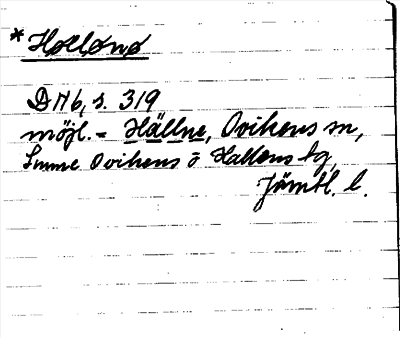 * Hollønø
DN6, s. 319
möjl. = Hällne, Ovikens sn,
Sunne Ovikens o Hallens tg,
Jämtl. l.